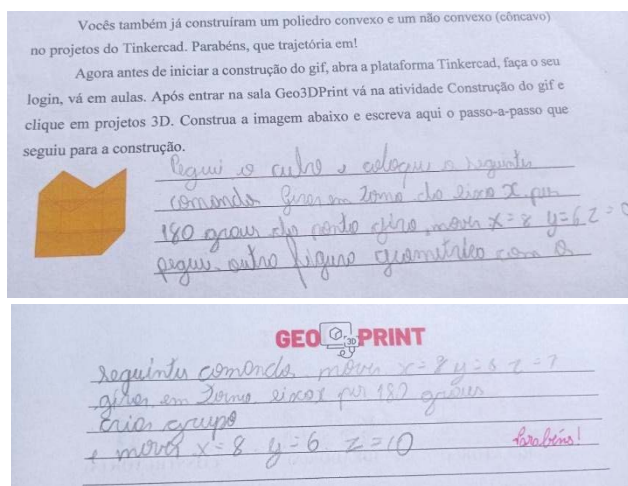 Vocês também já construíram um poliedro convexo e um não convexo (côncavo)
no projetos do Tinkercad. Parabéns, que trajetória em!
Agora antes de iniciar a construção do gif, abra a plataforma Tinkercad, faça o seu
login, vá em aulas. Após entrar na sala Geo3DPrint vá na atividade Construção do gif e
clique em projetos 3D. Construa a imagem abaixo e escreva aqui o passo-a-passo que
seguiu para a construção.
Peguei o cubo e coloque a seguinte
comando girar em torno do eixo X por
180 graus do ponto giro, mover X=8 y=6 Z=0
pegue outro figura geometrico com a
GEO 3D PRINT
seguinte comando mover x=8 y=6 z=7
girar em torno eixo x por 180 graus
criar grupo
e mover x=8 y=6 z=10
Parabéns!